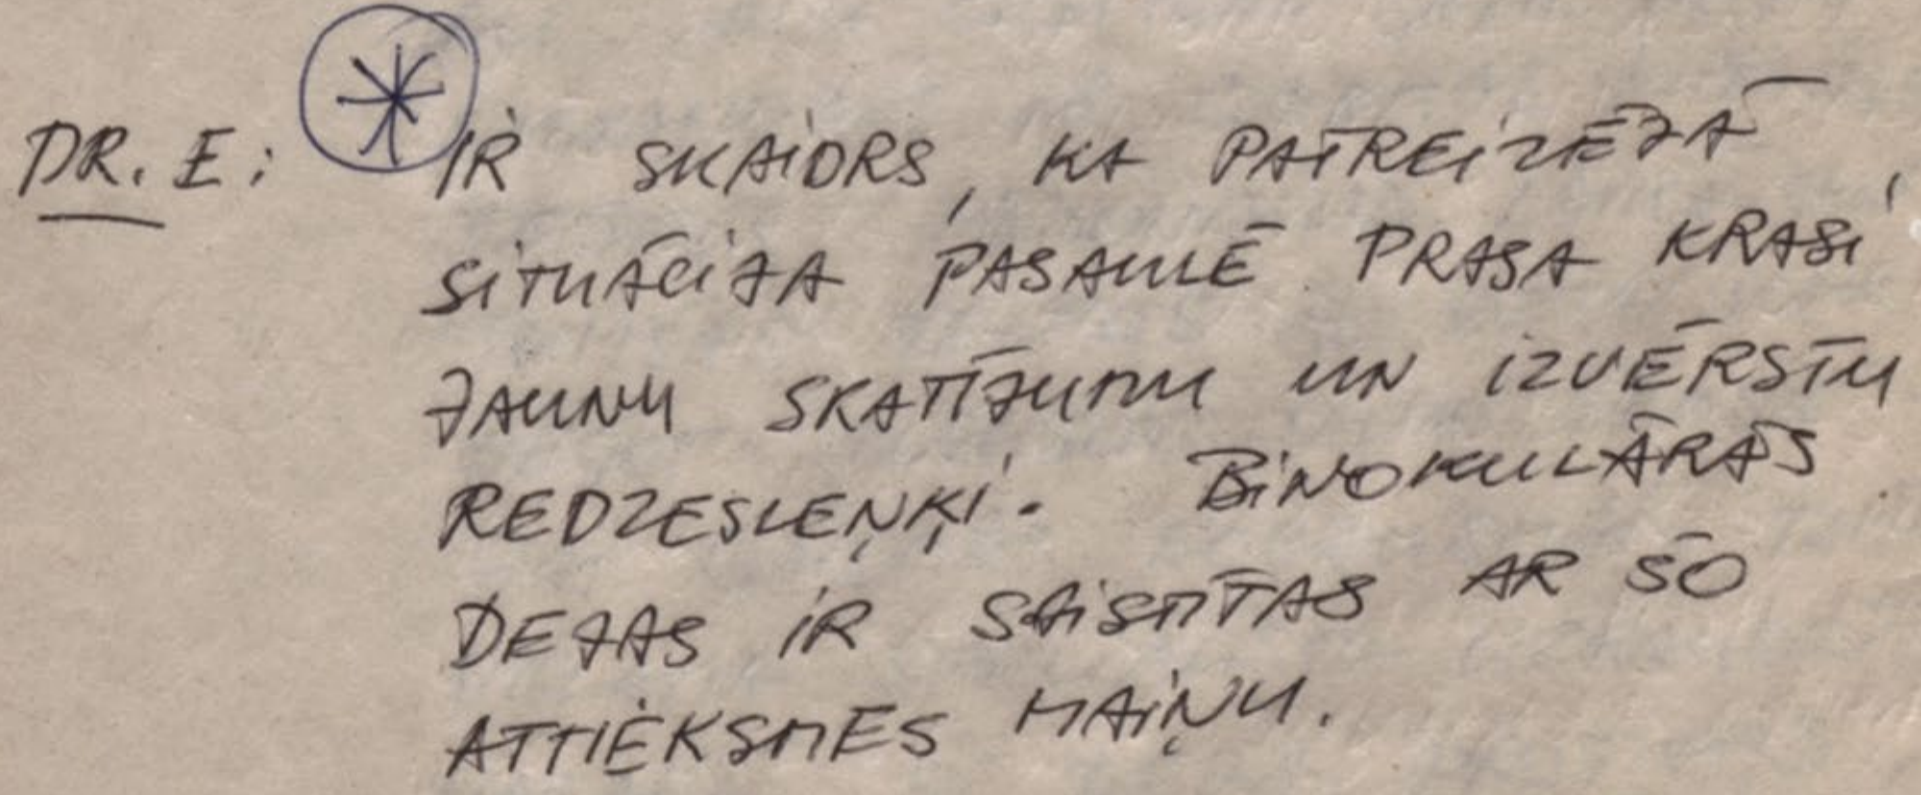 DR. E: * IR SKAIDRS, KA PATREIZĒJĀ
SITUĀCIJA PASAULĒ PRASA KRASI
JAUNU SKATĪJUMU UN IZVĒRSTU
REDZESLEŅĶI. BINOKULĀRĀS
DEJAS IR SAISTĪTAS AR ŠO
ATTIEKSMES MAIŅU.